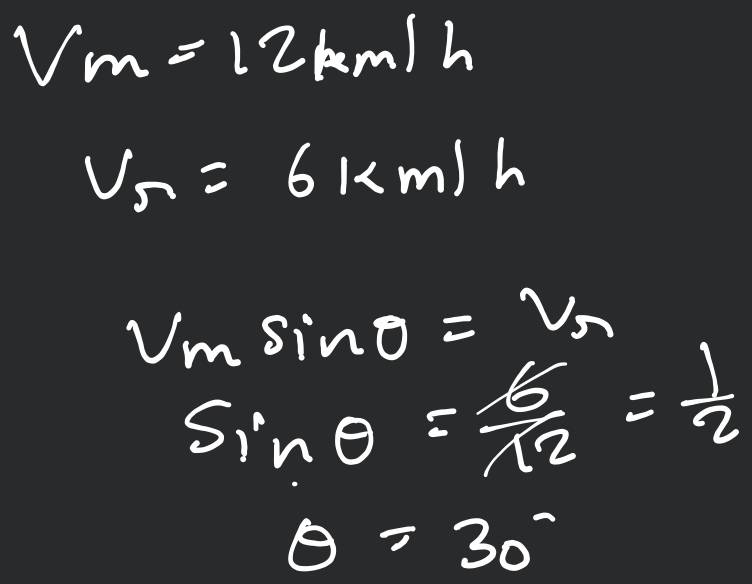 Vm = 12 km/h
Vr = 6 km/h
Vm sin θ = Vr
sin θ = 6/12 = 1/2
θ = 30°